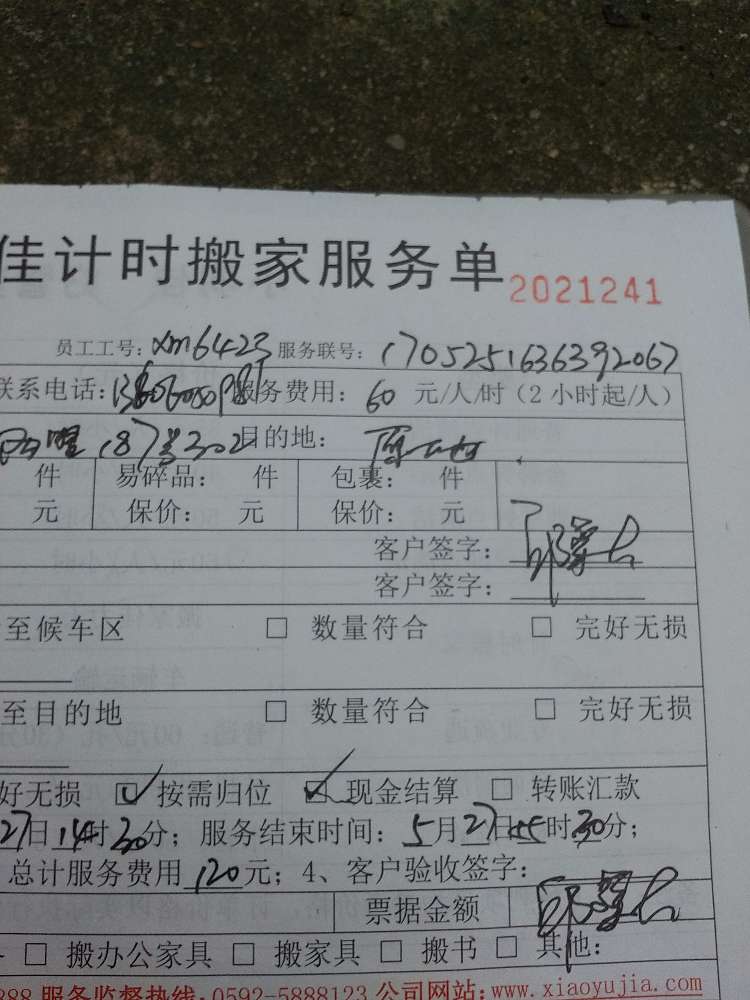 佳计时搬家服务单 2021241
员工工号: xm6423 服务联号: 1705251636392067
联系电话: 服务费用: 60 元/人/时(2小时起/人)
187号302 目的地:
件 易碎品: 件 包裹: 件
元 保价: 元 保价: 元
客户签字:
客户签字:
至候车区 □ 数量符合 □ 完好无损
至目的地 □ 数量符合 □ 完好无损
好无损 ☑ 按需归位 ☑ 现金结算 □ 转账汇款
27日14时30分; 服务结束时间: 5月27日15时30分;
总计服务费用 120 元; 4、客户验收签字:
票据金额
□ 搬办公家具 □ 搬家具 □ 搬书 □ 其他:
888 服务监督热线:0592-5888123 公司网站:www.xiaoyujia.com